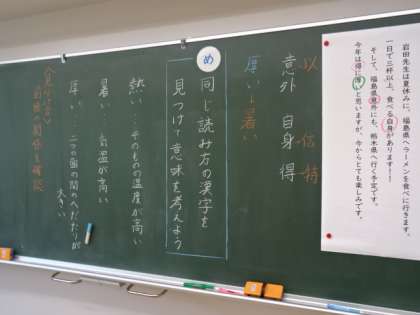 岩田先生は夏休みに、福島県へラーメンを食べに行きます。
一日で三杯以上、食べる自身があります!!!
そして、福島県意外にも、栃木県へ行く予定です。
今年は得に厚いと思いますが、今からとても楽しみです。
以 信 特
意外 自身 得
厚い→暑い
め
同じ読み方の漢字を
見つけて意味を考えよう
熱い…そのものの温度が高い
暑い…気温が高い
厚い…二つの面の間のへだたりが
大きい
の関係を確認